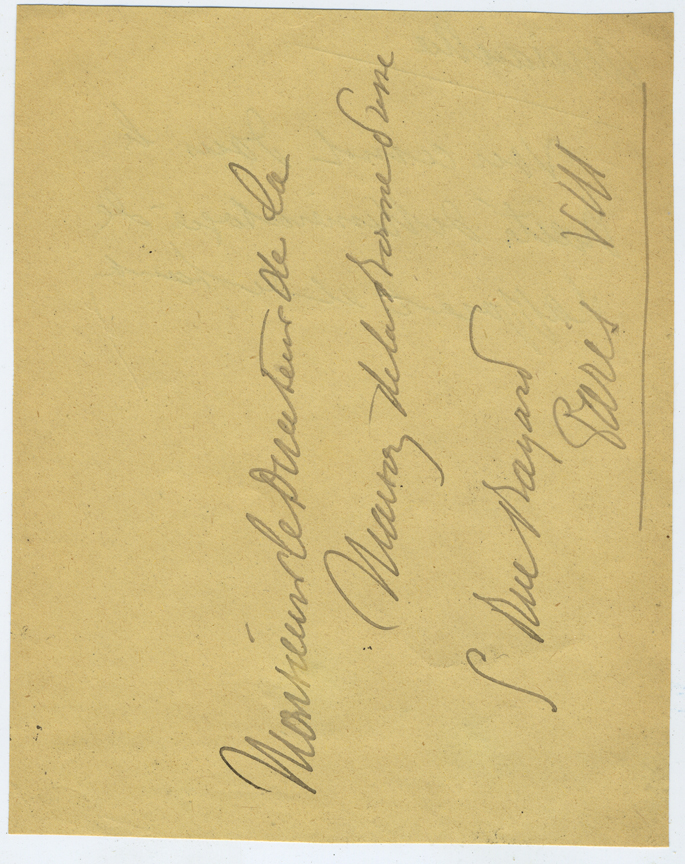 Monsieur le Directeur de La
Maison de la Bonne Presse
5 Rue Bayard
Paris VIII